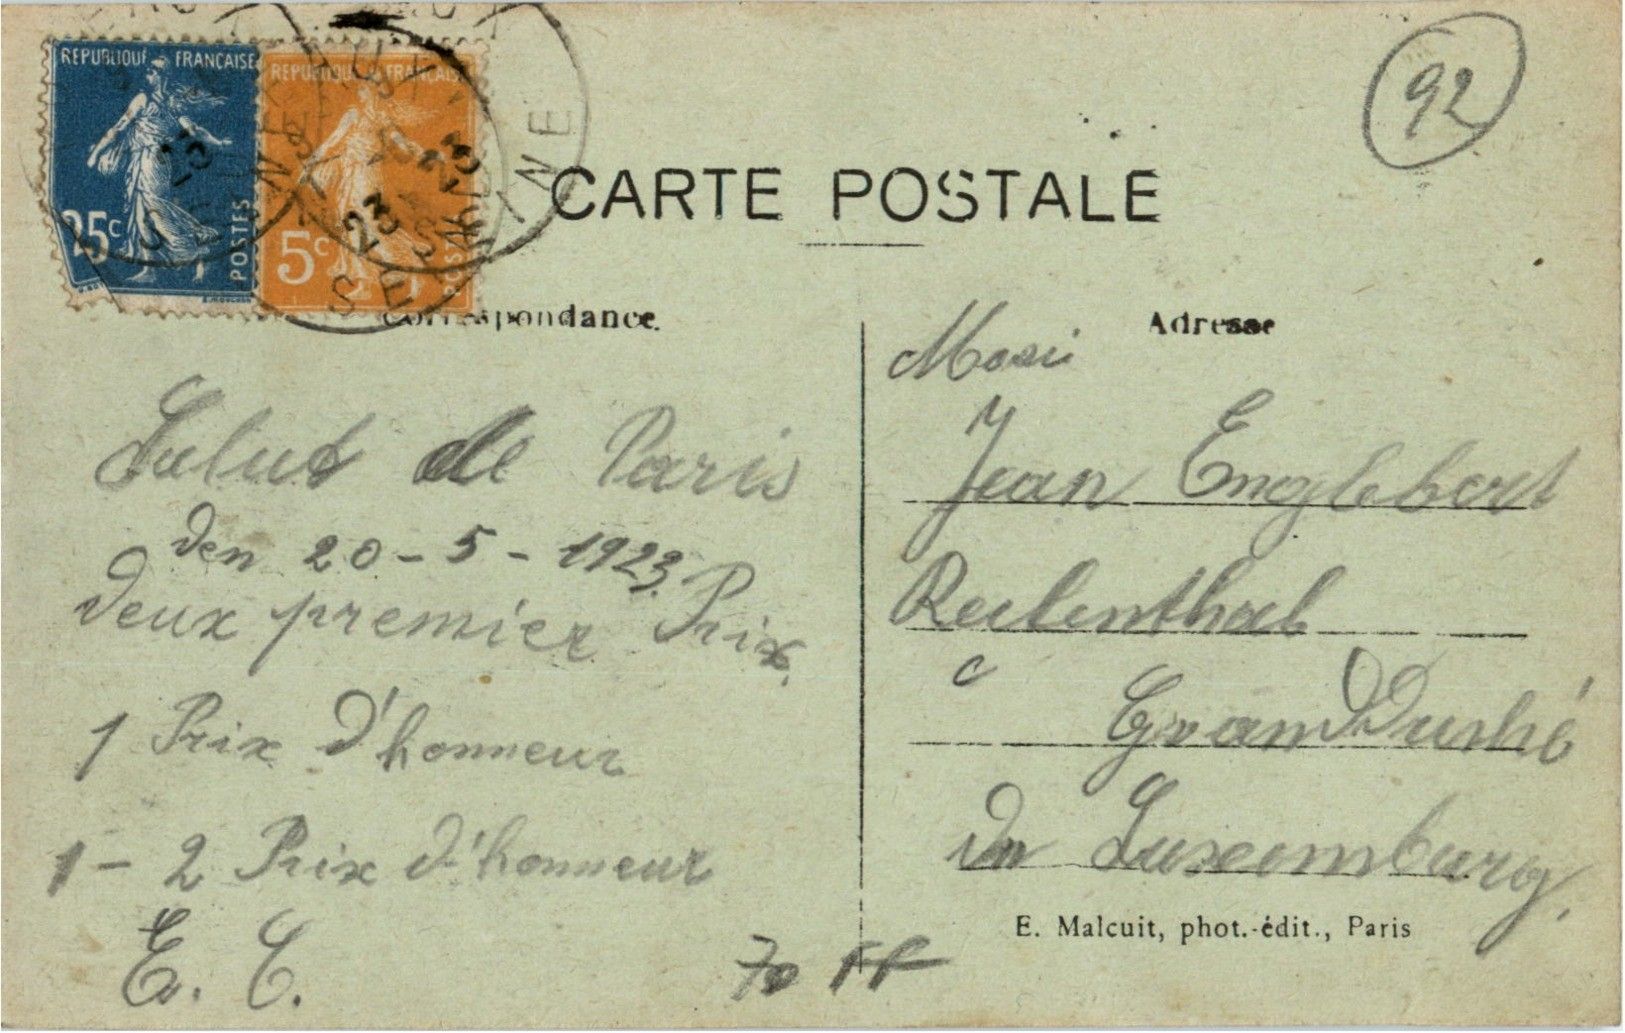 REPUBLIQUE FRANÇAISE
25c
POSTES
REPUBLIQUE FRANÇAISE
5c
POSTES
92
CARTE POSTALE
Correspondance
Adresse
Salut de Paris
den 20-5-1923.
deux premier Prix,
1 Prix d'honneur
1-2 Prix d'honneur
E. C.
Jean Englebert
Reulenthal
Grand Duché
du Luxemburg,
E. Malcuit, phot.-édit., Paris